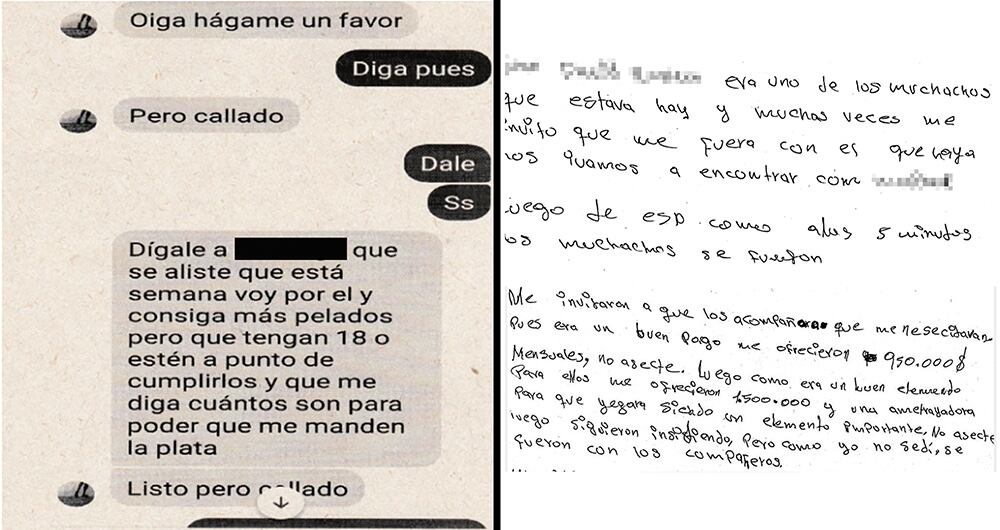 Oiga hágame un favor
Diga pues
Pero callado
Dale
Ss
Dígale a que
se aliste que está
semana voy por el y
consiga más pelados
pero que tengan 18 o
estén a punto de
cumplirlos y que me
diga cuántos son para
poder que me manden
la plata
Listo pero callado
era uno de los muchachos
que estava hay y muchas veces me
invito que me fuera con el que
nos ivamos a encontrar com
luego de eso como alos 5 minutos
los muchachos se fueron
Me invitaron a que los acompañara que me nesecitavan
Pues era un buen Pago me ofrecieron 950.000$
Mensuales, no asecte. Luego como era un buen elemento
Para ellos me ofrecieron 1500.000 y una ametrayadora
Para que yegara siendo un elemento importante, No asecte
luego siguieron insistiendo, Pero como yo no sedi, se
fueron con los compañeros.